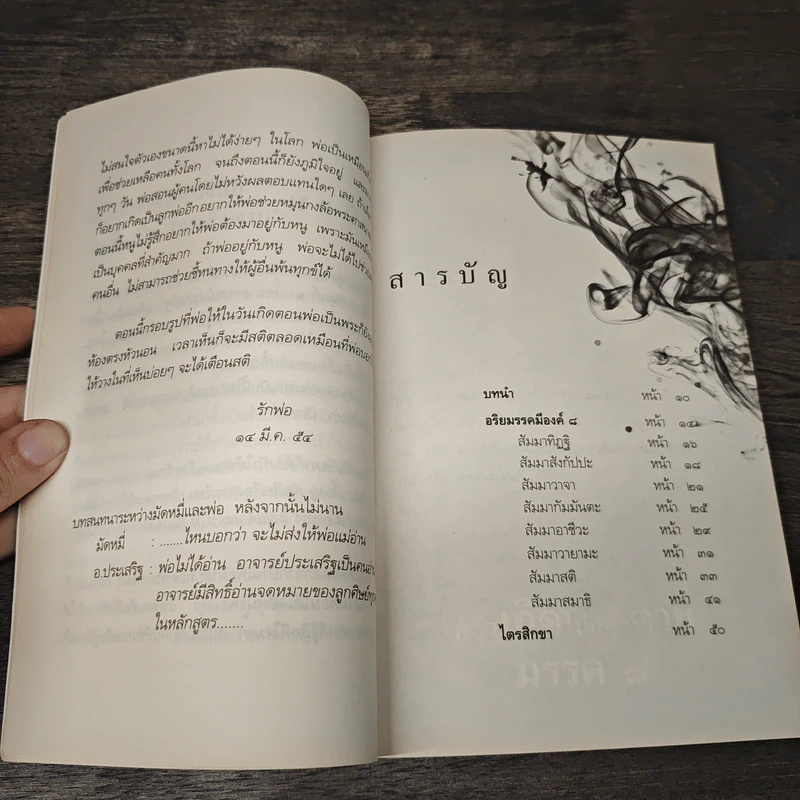 ไม่สนใจตัวเองขนาดนี้หาไม่ได้ง่ายๆ ในโลก พ่อเป็นเหมือน
เพื่อช่วยเหลือคนทั้งโลก จนถึงตอนนี้ก็ยังภูมิใจอยู่
ทุกๆ วัน พ่อสอนผู้คนโดยไม่หวังผลตอบแทนใดๆ เลย
ก็อยากเกิดเป็นลูกพ่ออีกอยากให้พ่อช่วยหมุนกงล้อพระศาสน
ตอนนี้หนูไม่รู้สึกอยากให้พ่อต้องมาอยู่กับหนู เพราะมันเหมือน
เป็นบุคคลที่สำคัญมาก ถ้าพ่ออยู่กับหนู พ่อจะไม่ได้ไปช่วย
คนอื่น ไม่สามารถช่วยชี้หนทางให้ผู้อื่นพ้นทุกข์ได้
ตอนนี้กรอบรูปที่พ่อให้ในวันเกิดตอนพ่อเป็นพระก็ยัง
ห้องตรงหัวนอน เวลาเห็นก็จะมีสติตลอดเหมือนที่พ่อบอก
ให้วางในที่เห็นบ่อยๆ จะได้เตือนสติ
รักพ่อ
๑๔ มี.ค. ๕๔
บทสนทนาระหว่างมัดหมี่และพ่อ หลังจากนั้นไม่นาน
มัดหมี่ : .......ไหนบอกว่า จะไม่ส่งให้พ่อแม่อ่าน
อ.ประเสริฐ : พ่อไม่ได้อ่าน อาจารย์ประเสริฐเป็นคนอ่าน
อาจารย์มีสิทธิ์อ่านจดหมายของลูกศิษย์ทุก
ในหลักสูตร.......
สารบัญ
บทนำ หน้า ๑๐
อริยมรรคมีองค์ ๘ หน้า ๑๔
สัมมาทิฏฐิ หน้า ๑๖
สัมมาสังกัปปะ หน้า ๑๘
สัมมาวาจา หน้า ๒๑
สัมมากัมมันตะ หน้า ๒๕
สัมมาอาชีวะ หน้า ๒๙
สัมมาวายามะ หน้า ๓๑
สัมมาสติ หน้า ๓๓
สัมมาสมาธิ หน้า ๔๑
ไตรสิกขา หน้า ๕๐
มรรค ๘